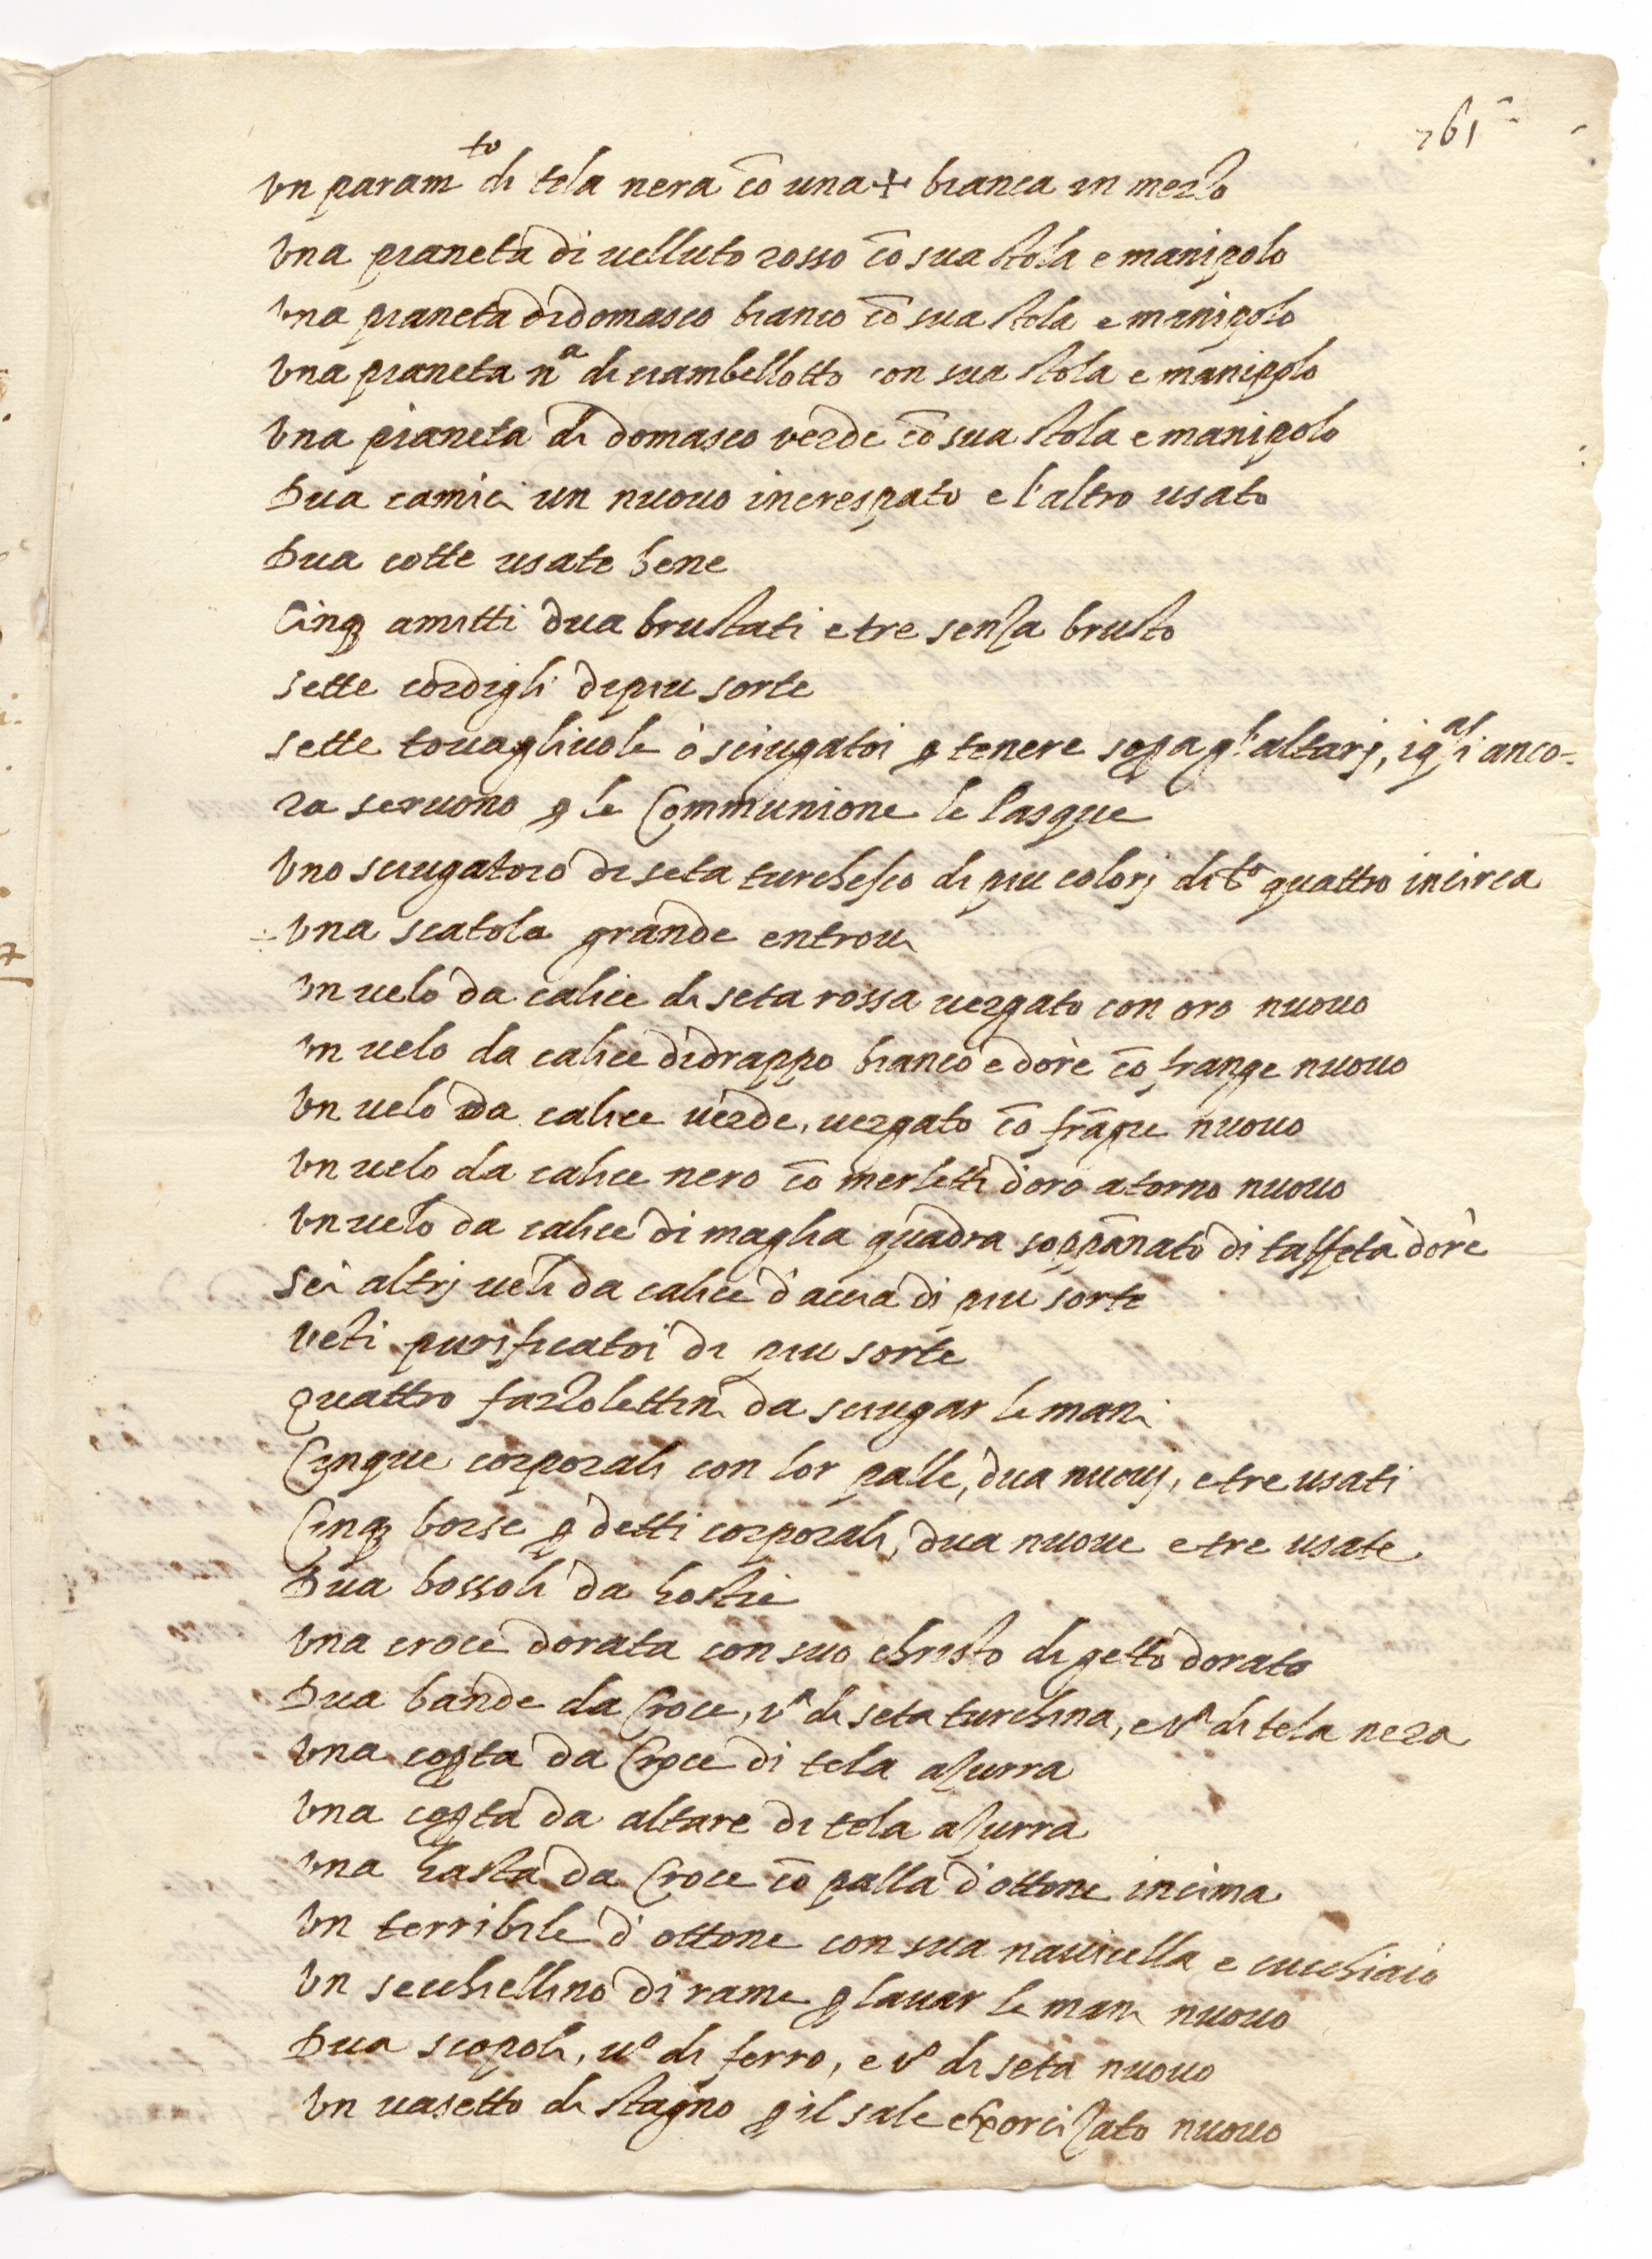 761
Vn param^to di tela nera cō una + bianca in mezzo
Vna pianeta di uelluto rosso cō sua stola e manipolo
Vna pianeta di domasco bianco cō sua stola e manipolo
Vna pianeta n^a di ciambellotto con sua stola e manipolo
Vna pianeta di domasco verde cō sua stola e manipolo
Dua camici un nuouo increspato e l'altro usato
Dua cotte usate bene
Cinq₃ amitti dua brustati e tre senza brusto
sette cordigli di piu sorte
sette touagliuole ò sciugatoi ꝑ tenere sopa gl'altarj, i q^ali anco-
ra seruono ꝑ le Communione le Pasque
Vno sciugatoio di seta turchesco di piu colorj di b^a quattro incirca
Vna scatola grande entroui
Vn uelo da calice di seta rossa uergato con oro nuouo
Vn uelo da calice di drappo bianco e dorè cō frange nuouo
Vn uelo da calice uerde, uergato cō frāgie nuouo
Vn uelo da calice nero cō merletti d'oro atorno nuouo
Vn uelo da calice di maglia quadra soppānato di taffeta dorè
Sei altrj ueli da calice d'accia di piu sorte
Veti purificatoi di piu sorte
Quattro fazzolettini da sciugar le mani
Cinque corporali con lor palle, dua nuouj, e tre usati
Cinq₃ borse ꝑ detti corporali, dua nuoue e tre usate
Dua bossoli da hostie
Vna croce dorata con suo christo di getto dorato
Dua bande da Croce, v^a di seta turchina, e v^a di tela nera
Vna coꝑta da Croce di tela azurra
Vna coꝑta da altare di tela azurra
Vna hasta da Croce cō palla d'ottone in cima
Vn terribile d'ottone con sua nauicella e cucchiaio
Vn secchiellino di rame ꝑ lauar le mani nuouo
Dua scopoli, u^o di ferro, e v^o di seta nuouo
Vn uasetto di stagno ꝑ il sale exorcizato nuouo